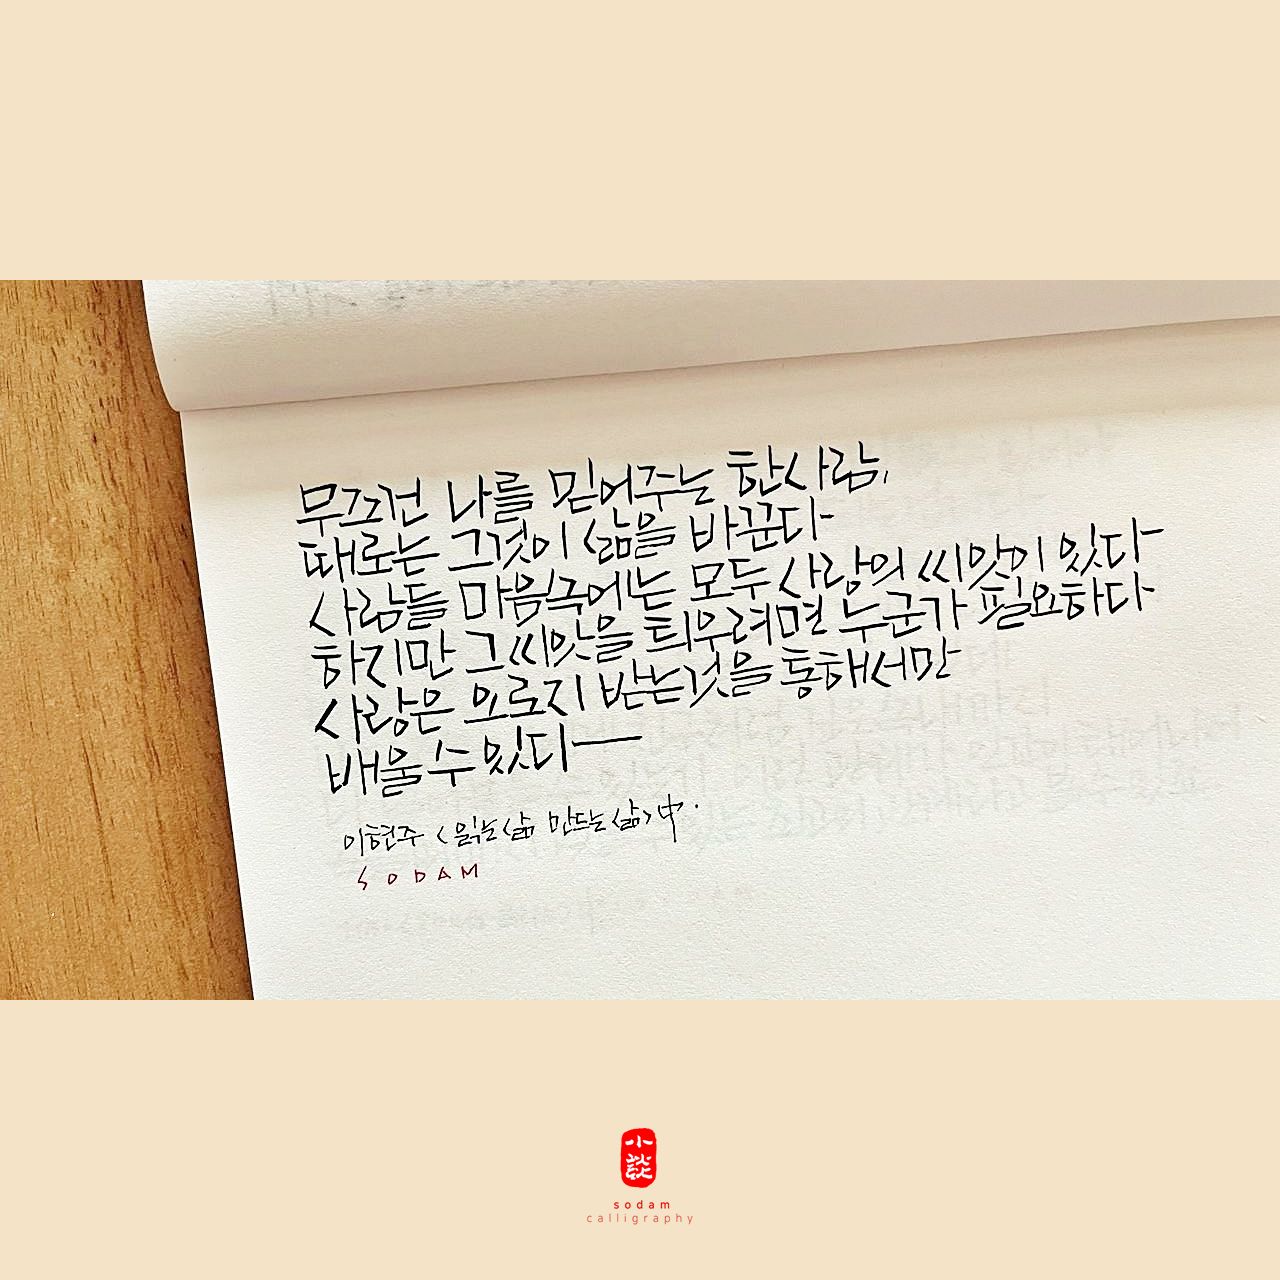 무조건 나를 믿어주는 한사람,
때로는 그것이 삶을 바꾼다
사람들 마음속에는 모두 사랑의 씨앗이 있다
하지만 그 씨앗을 틔우려면 누군가 필요하다
사랑은 오로지 받는것을 통해서만
배울수 있다
이현주 <읽는 삶 만드는 삶> 中.
SODAM
小談
sodam
calligraphy